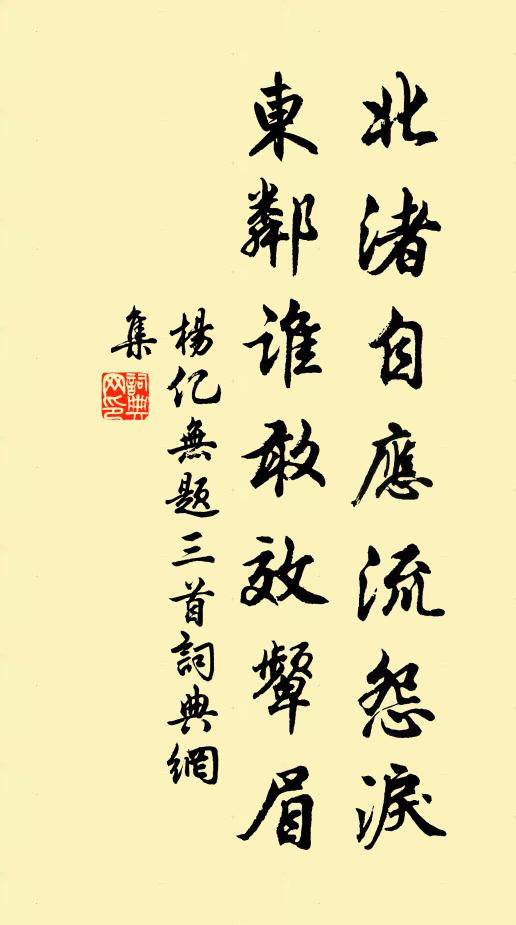 北渚自應流怨淚
東鄰誰敢效顰眉
楊亿無题三首詞典網
集
詞典网印